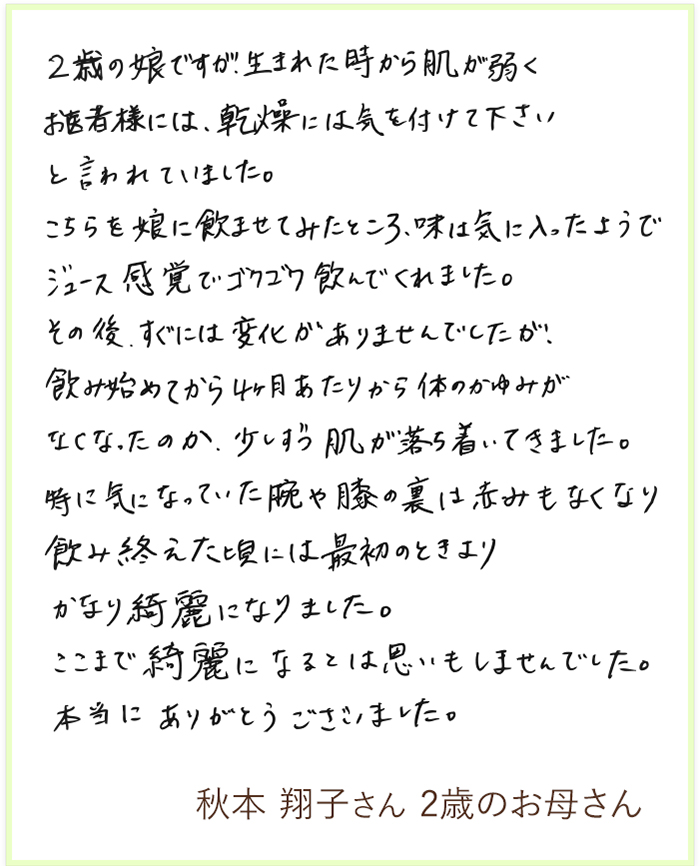 2歳の娘ですが、生まれた時から肌が弱く
お医者様には、乾燥には気を付けて下さい
と言われていました。
こちらを娘に飲ませてみたところ、味は気に入ったようで
ジュース感覚でゴクゴク飲んでくれました。
その後、すぐには変化がありませんでしたが、
飲み始めてから4ヶ月あたりから体のかゆみが
なくなったのか、少しずつ肌が落ち着いてきました。
特に気になっていた腕や膝の裏は赤みもなくなり
飲み終えた頃には最初のときより
かなり綺麗になりました。
ここまで綺麗になるとは思いもしませんでした。
本当にありがとうございました。
秋本 翔子さん 2歳のお母さん